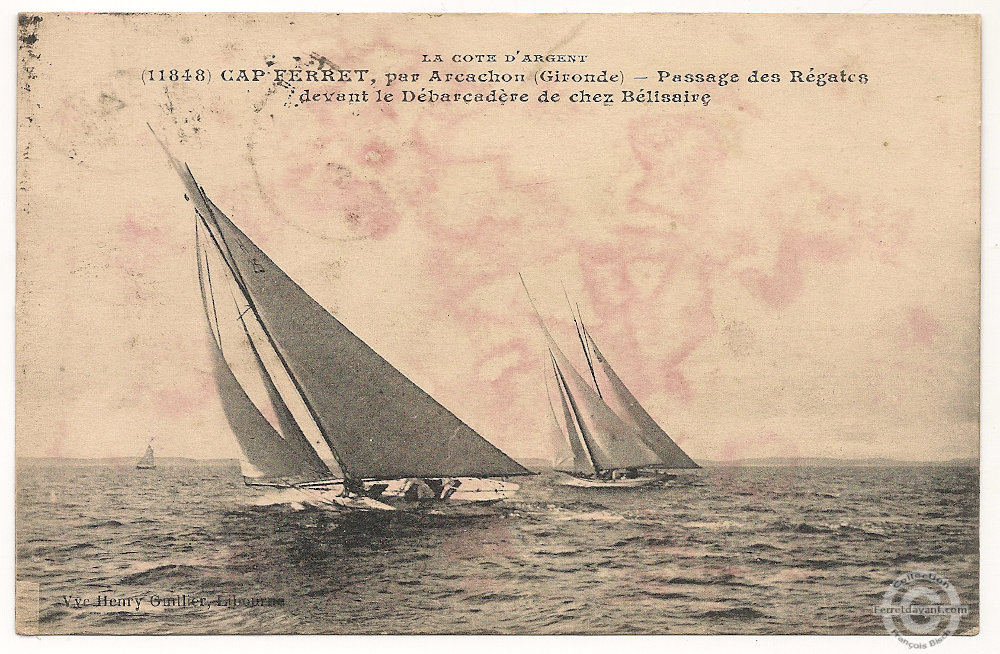 LA COTE D'ARGENT
(11848) CAP FERRET, par Arcachon (Gironde) – Passage des Régates
devant le Débarcadère de chez Bélisaire
Vve Henry Guillier, Libourne
Collection
Ferretdavant.com
François Bisch